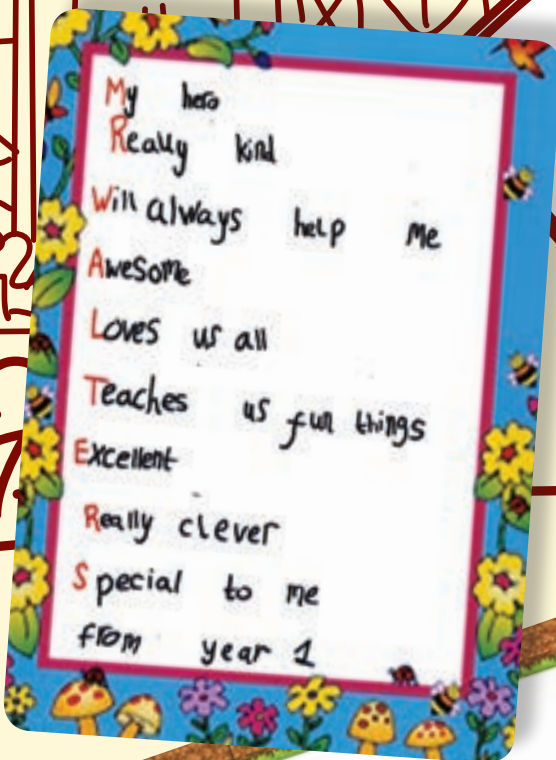 My hero
Really kind
Will always help me
Awesome
Loves us all
Teaches us fun things
Excellent
Really clever
Special to me
from year 1